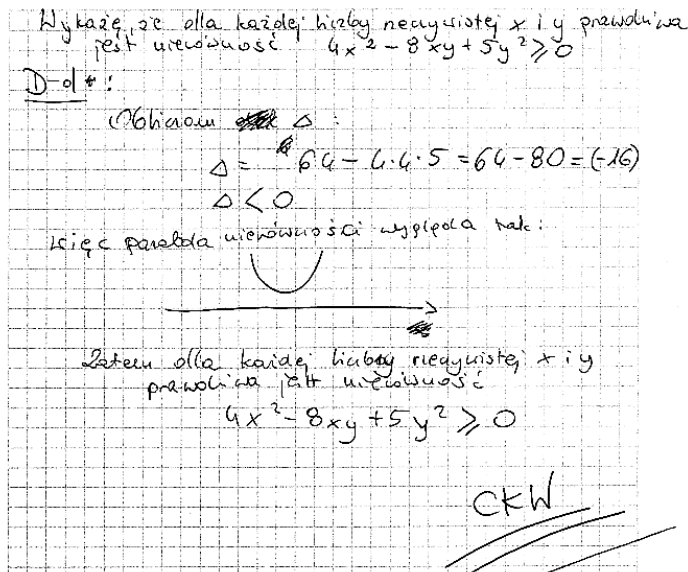 Wykażę, że dla każdej liczby rzeczywistej x i y prawdziwa
jest nierówność 4x² - 8xy + 5y² ⩾ 0
D-d:
Obliczam Δ:
Δ = 64 - 4·4·5 = 64 - 80 = (-16)
Δ < 0
więc parabola nierówności wygląda tak:
Zatem dla każdej liczby rzeczywistej x i y
prawdziwa jest nierówność
4x² - 8xy + 5y² ⩾ 0
CKW